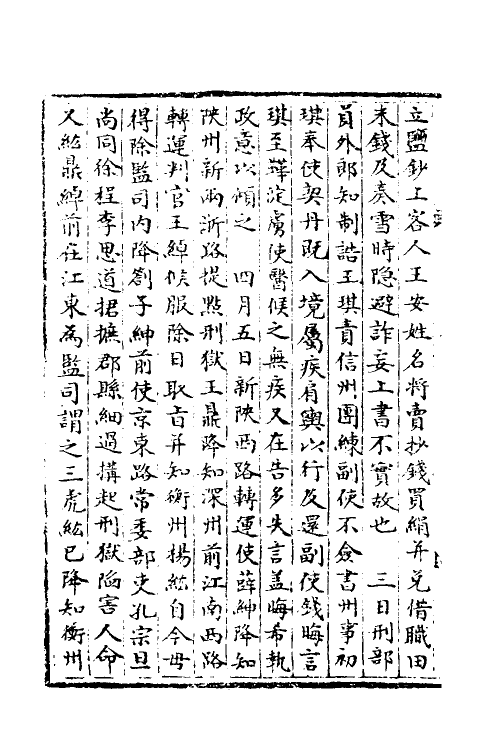 立鹽鈔上客人王安姓名將賣抄錢買絹并兌借職田
米錢及奏雪時隐避詐妄上書不實故也　三日刑部
員外郎知制誥王琪責信州團練副使不僉書州事初
琪奉使契丹既入境屬疾肩輿以行及還副使錢晦言
琪至鞾淀虜使醫候之無疾又在告多失言盖晦希執
政意以傾之　四月五日新陝西路轉運使薛紳降知
陝州新兩浙路提㸃刑獄王鼎降知深州前江南西路
轉運判官王綽候服除日取旨并知衡州楊紘自今毋
得除監司内降劄子紳前使京東路常委部吏孔宗旦
尚同徐程李思道捃摭郡縣細過搆起刑獄陷害人命
又紘鼎綽前在江東為監司謂之三虎紘已降知衡州